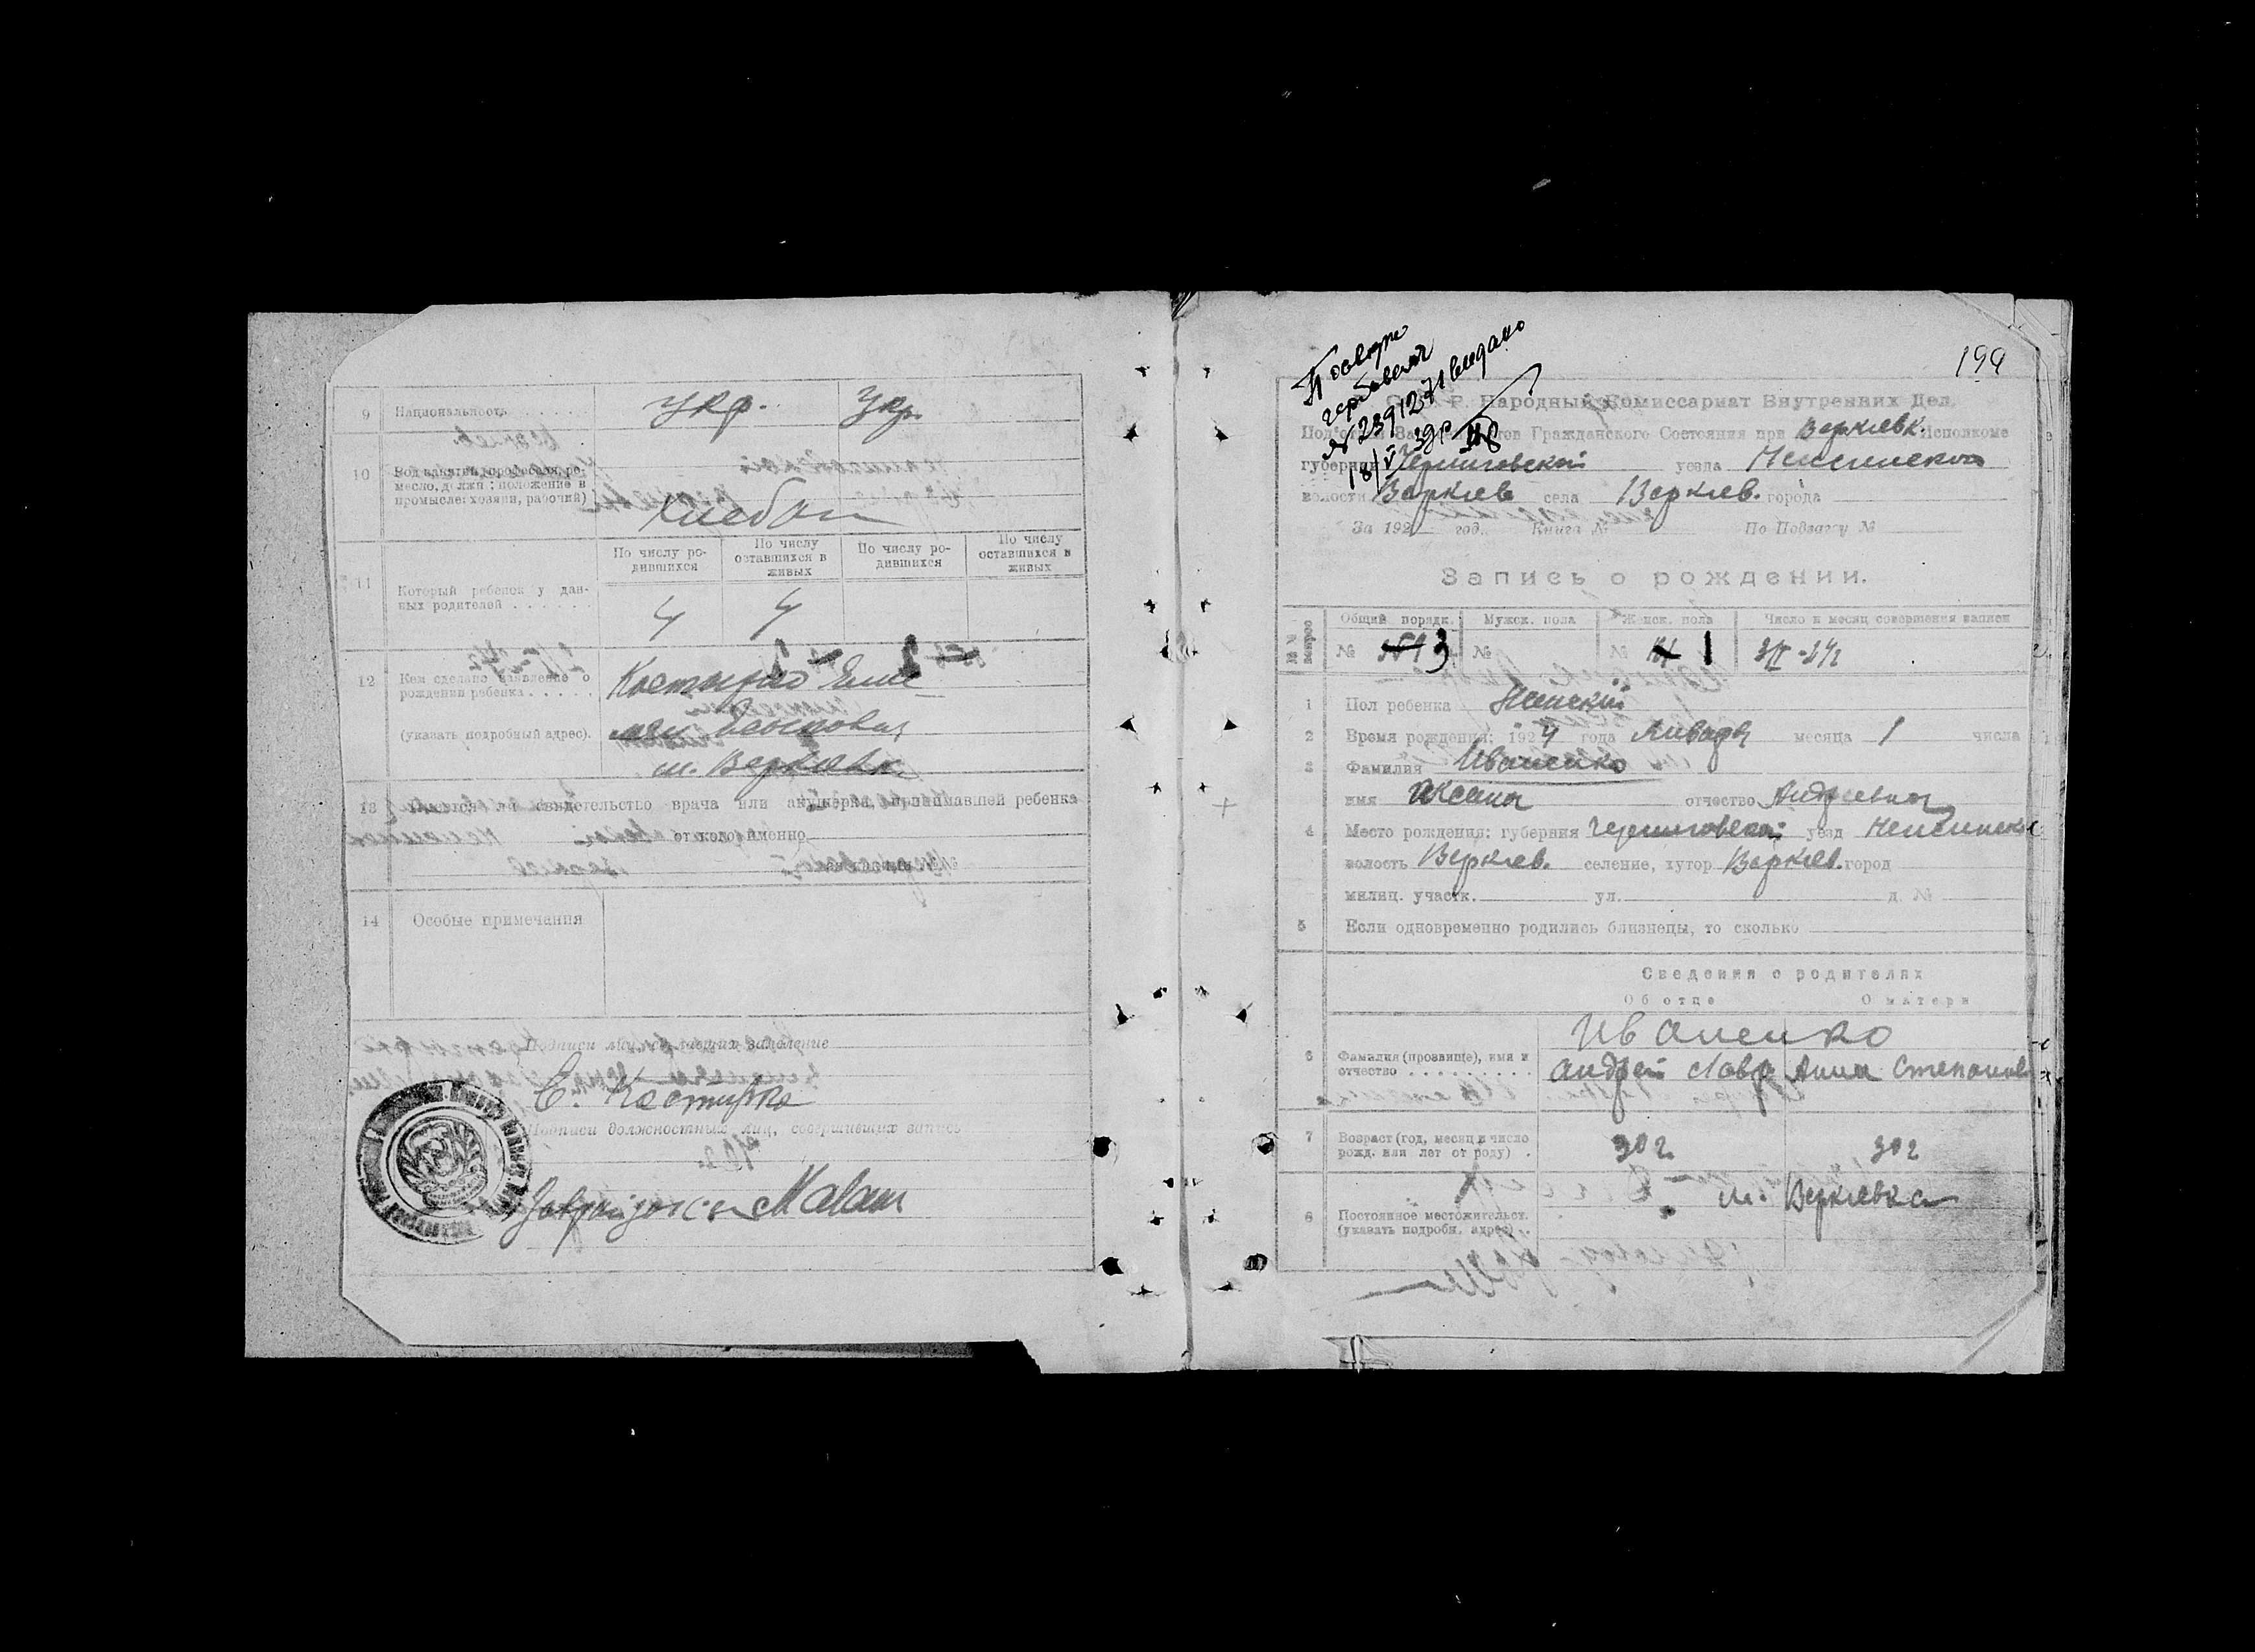 9 Национальность укр. Укр.
10 Род занятий (профессия, ремесло, должн; положение в промысле: хозяин, рабочий)
Хлебоп
11 Который ребенок у данных родителей
По числу родившихся По числу оставшихся в живых По числу родившихся По числу оставшихся в живых
4 4
12 Кем сделано заявление о рождении ребенка
Костирко
(указать подробный адрес).
м. Веркиевк.
13 Имеется ли свидетельство врача или акушерки, принимавшей ребенка
от кого именно
14 Особые примечания
Подписи лиц, делающих заявление
Є. Костирко
Подписи должностных лиц, совершивших запись
199
№ 2391271 видано
18/V 39р
Народный Комиссариат Внутренних Дел.
Гражданского Состояния при Веркиевк. Исполкоме
губернии Черниговской уезда Неженского
волости Веркиев села Веркиев. города
За 192 год. Книга № По Подзагсу №
Запись о рождении.
№№ вопрос Общий порядк. Мужск. пола Женск. пола Число и месяц совершения записи
№ 3 № № 1 3/I-24г
1 Пол ребенка Женский
2 Время рождения: 1924 года Января месяца 1 числа
3 Фамилия Иваненко
имя Оксана отчество Андреевна
4 Место рождения: губерния Черниговской уезд Неженск
волость Веркиев. селение, хутор Веркиев. город
милиц. участк. ул. д. №
5 Если одновременно родились близнецы, то сколько
Сведения о родителях
Об отце О матери
Иваненко
6 Фамилия (прозвище), имя и отчество Андрей Лавр Анна Степанов
7 Возраст (год, месяц и число рожд. или лет от роду) 30 г. 30 г
м. Веркиевка
8 Постоянное местожительст. (указать подробн. адрес)